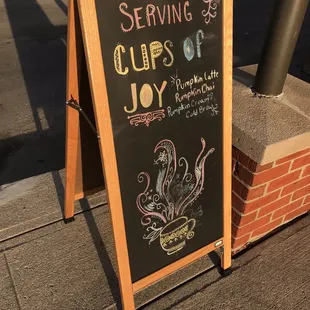 SERVING
CUPS OF
JOY
Pumpkin Latte
Pumpkin Chai
Pumpkin Cream
Cold Brew